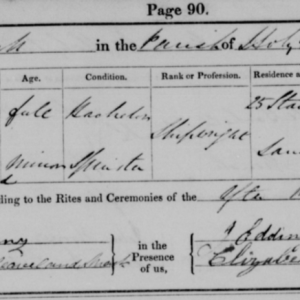 Page 90.
in the Parish of Holy
Age. Condition. Rank or Profession. Residence a
full Bachelor Shipwright 25 Sta
Minor Spinster
ding to the Rites and Ceremonies of the after
in the Presence of us,
Elizabe